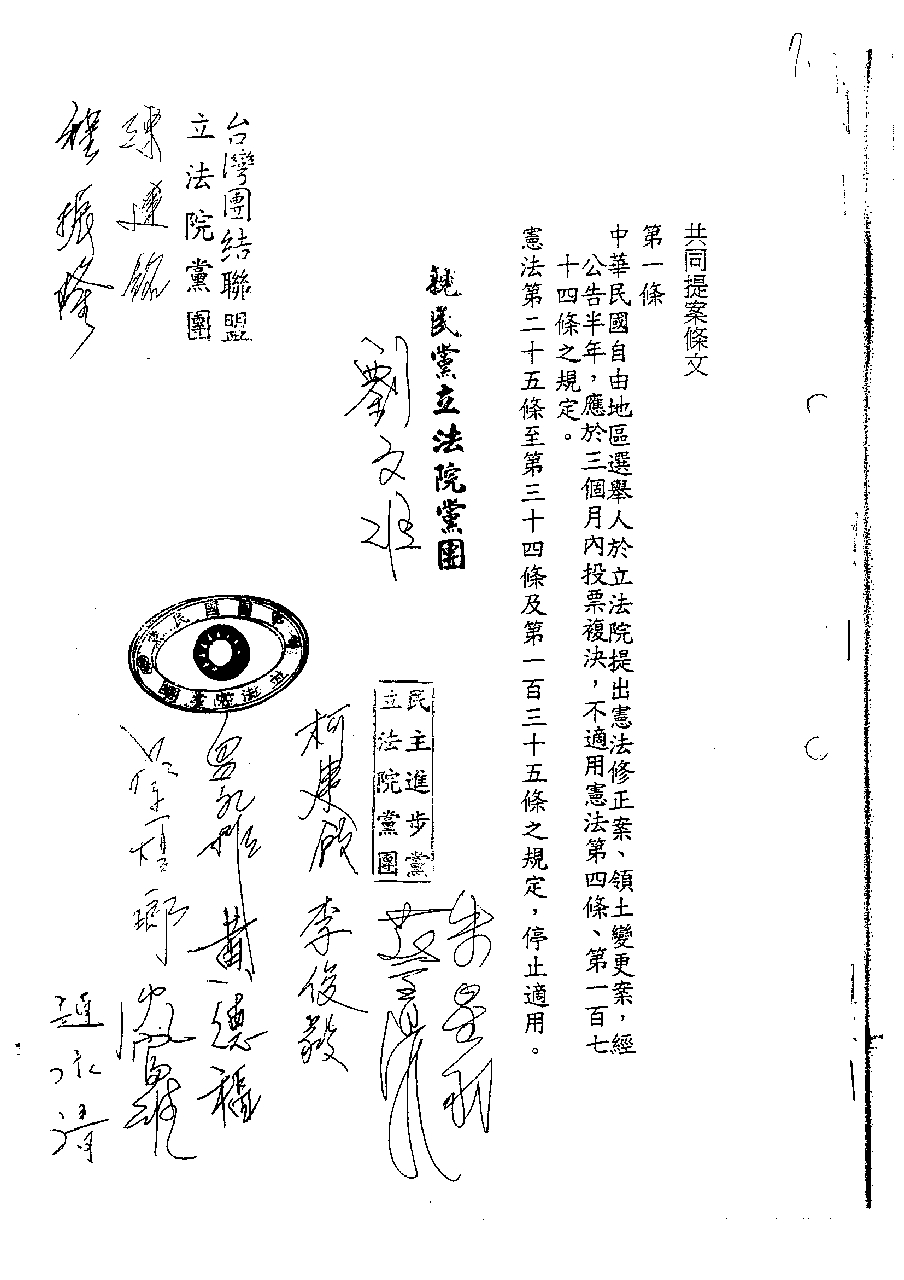 7.
共同提案條文
第一條
中華民國自由地區選舉人於立法院提出憲法修正案、領土變更案，經
公告半年，應於三個月內投票複決，不適用憲法第四條、第一百七
十四條之規定。
憲法第二十五條至第三十四條及第一百三十五條之規定，停止適用。
親民黨立法院黨團
劉文雄
民主進步黨
立法院黨團
柯建銘
李俊毅
台灣團結聯盟
立法院黨團
陳建銘
程振隆
黃德福